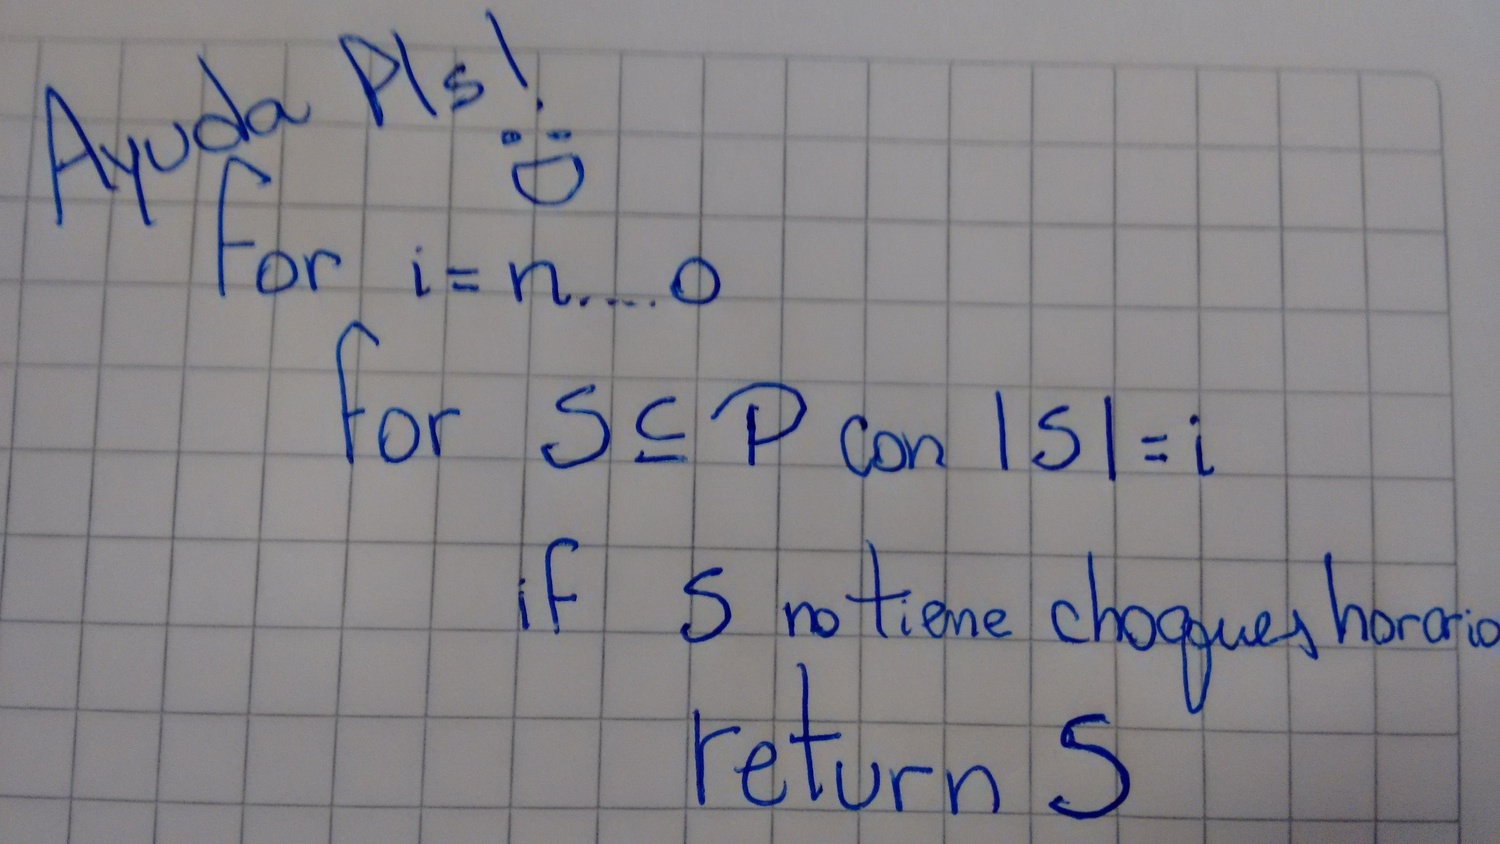 Ayuda Pls!
for i=n....0
for S⊆P con |S|=i
if S no tiene choques horario
return S